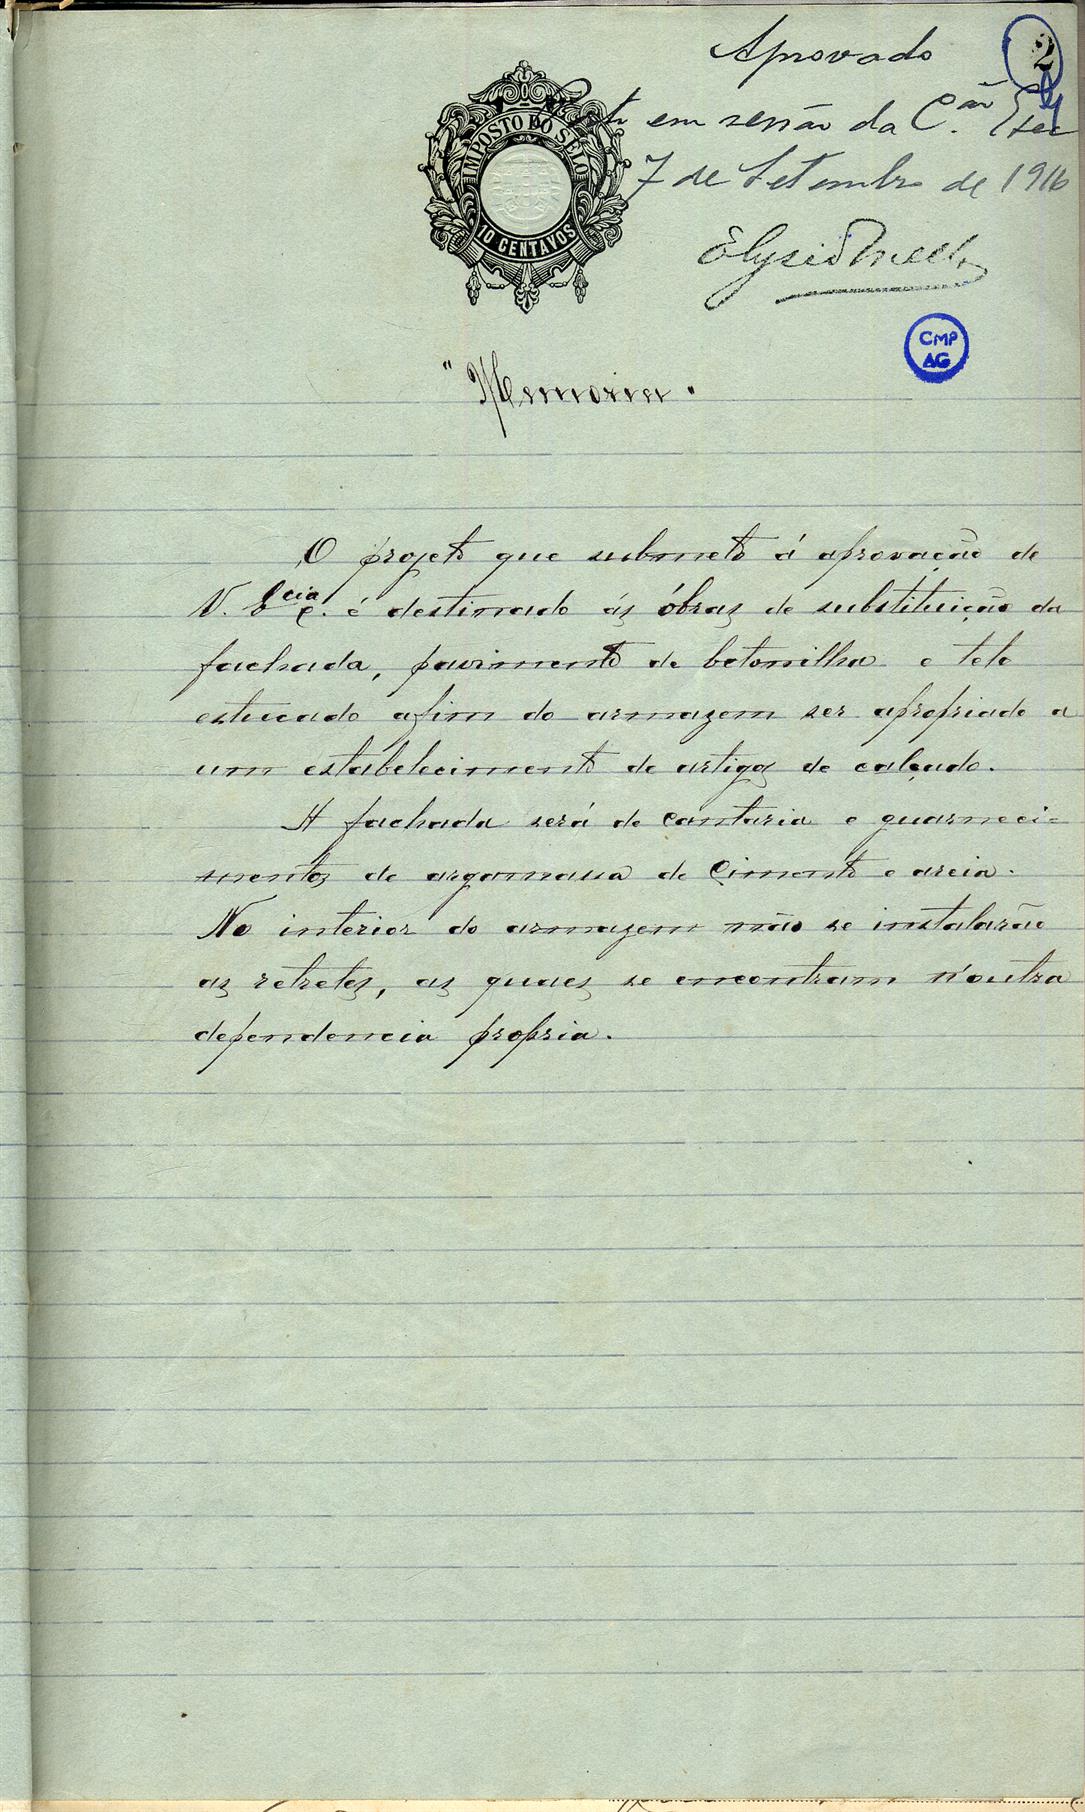 2
Aprovado
Porto em sessão da C.ão Exec
7 de Setembro de 1916
Elysio Mello
IMPOSTO DO SELO
10 CENTAVOS
CMP
AG
"Memoria."
O projeto que submeto á aprovação de
V. Ecia e. é destinado ás óbras de substituição da
fachada, pavimento de betonilha e teto
estucado afim do armazem ser apropriado a
um estabelecimento de artigos de calçado.
A fachada será de cantaria e guarneci=
mentos de argamassa de cimento e areia.
No interior do armazem não se instalarão
as retretes, as quaes se encontram n'outra
dependencia propria.